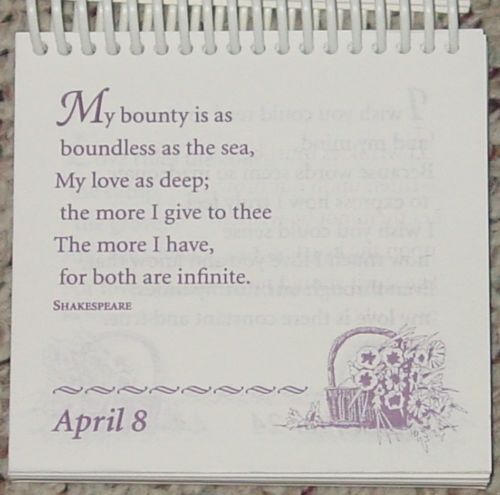 My bounty is as
boundless as the sea,
My love as deep;
the more I give to thee
The more I have,
for both are infinite.
SHAKESPEARE
April 8